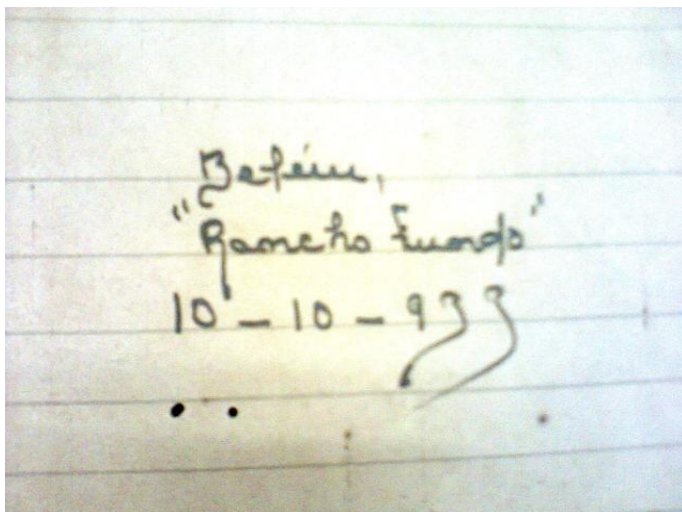 Belém,
"Rancho Fundo"
10 - 10 - 933